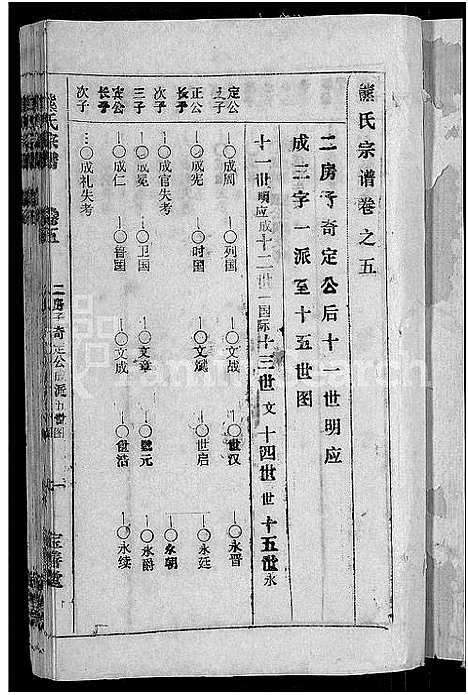 熊氏宗谱卷之五
二房子奇定公后十一世明应
成三字一派至十五世图
十一世明应成十二世国际十三世文十四世世十五世永
定公
之子
○成周
○列国
○文战
○世汉
○永晋
正公
长子
○成宪
○时国
○文斌
○世启
○永廷
次子
○成官失考
○永朝
三子
○成冕
○卫国
○文章
○元
○永爵
宾公
长子
○成仁
○鲁国
○文成
○世浩
○永续
次子
○成礼失考
熊氏宗谱
卷五
二房子奇定公成派五世图
一
善堂